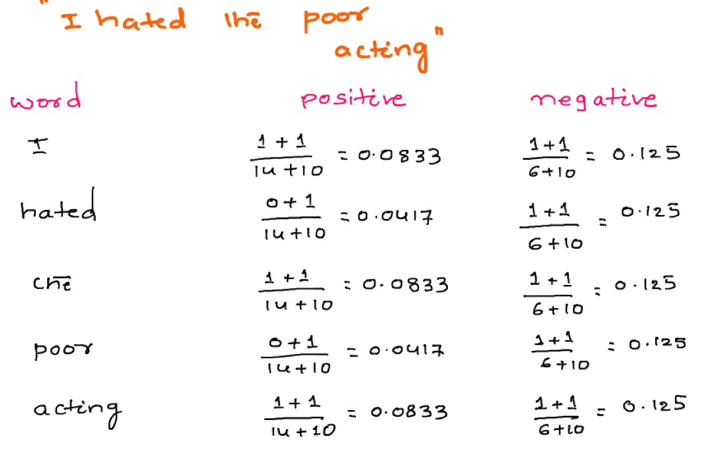 "I hated the poor
acting"
word positive negative
I 1+1/14+10 = 0.0833 1+1/6+10 = 0.125
hated 0+1/14+10 = 0.0417 1+1/6+10 = 0.125
the 1+1/14+10 = 0.0833 1+1/6+10 = 0.125
poor 0+1/14+10 = 0.0417 1+1/6+10 = 0.125
acting 1+1/14+10 = 0.0833 1+1/6+10 = 0.125